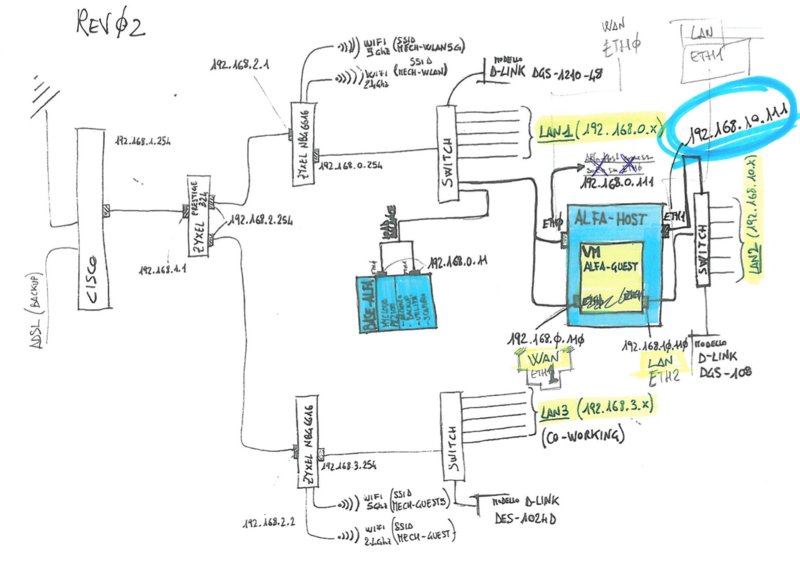 REV02
WIFI (SSID
5Ghz MECH-WLAN5G)
WIFI (SSID
2.4Ghz MECH-WLAN)
192.168.2.1
ZYXEL NBG6616
192.168.0.254
MODELLO
D-LINK DGS-1210-48
SWITCH
LAN1 (192.168.0.X)
WAN
ETH0
LAN
ETH1
192.168.10.111
192.168.1.254
CISCO
ADSL (BACKUP)
192.168.1.1
ZYXEL PRESTIGE
324
192.168.2.254
192.168.0.111
ETH0
ALFA-HOST
ETH1
VM
ALFA-GUEST
SWITCH
LAN2 (192.168.10.X)
BASE-ALFA
192.168.0.11
192.168.0.110
WAN
ETH1
192.168.10.110
LAN
ETH2
MODELLO
D-LINK
DGS-108
ZYXEL NBG6616
192.168.3.254
SWITCH
LAN3 (192.168.3.X)
(CO-WORKING)
WIFI (SSID
5Ghz MECH-GUEST5)
192.168.2.2
WIFI (SSID
2.4Ghz MECH-GUEST)
MODELLO D-LINK
DES-1024D